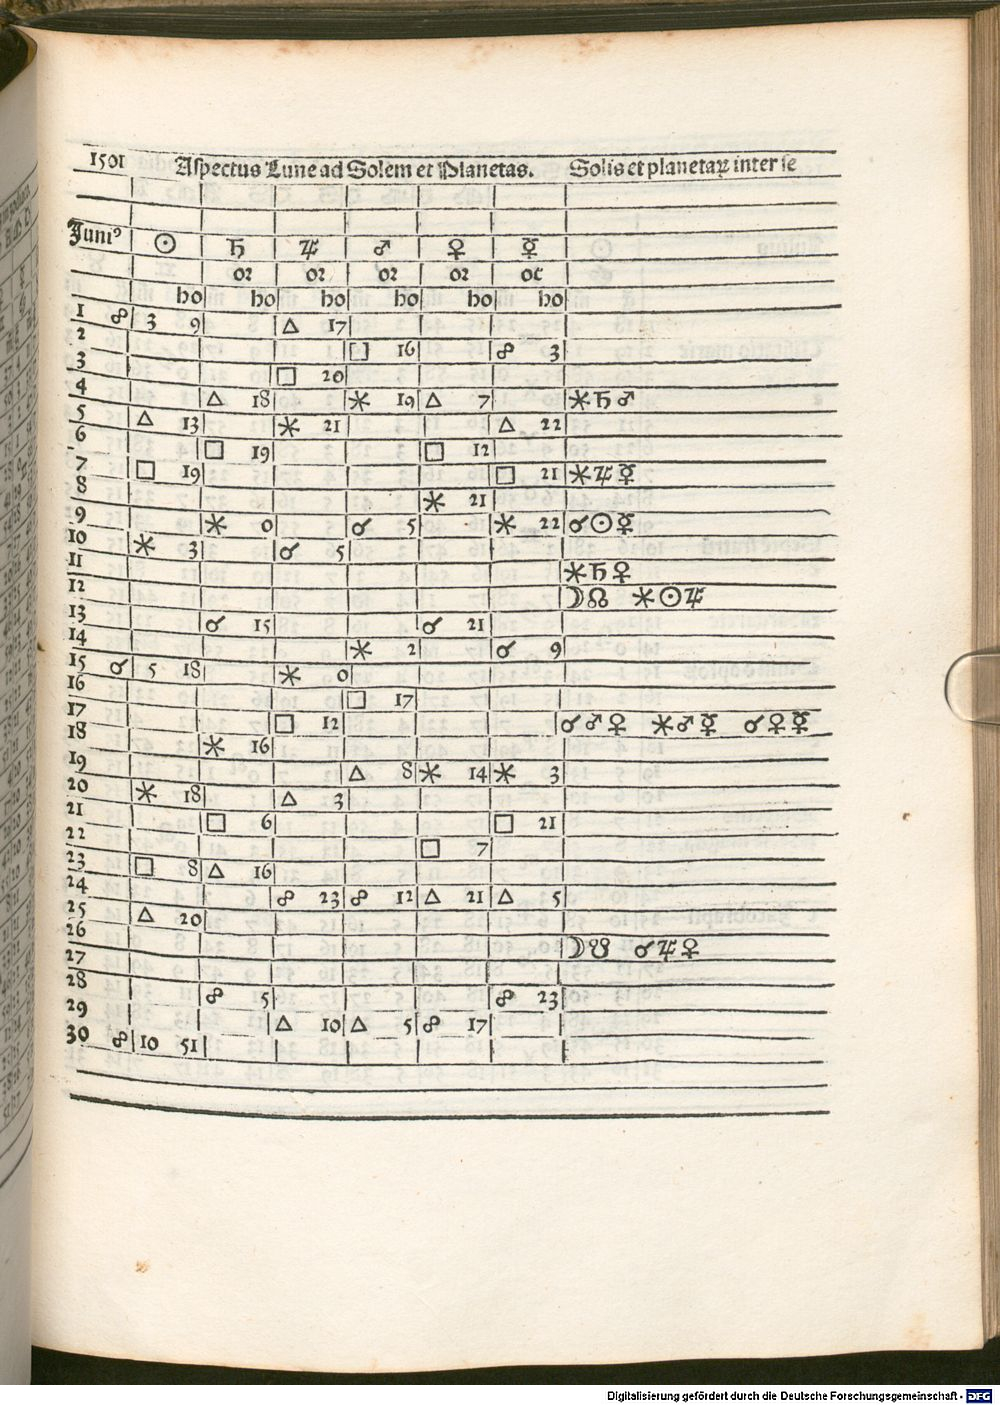 1501 Aspectus Lune ad Solem et Planetas. Solis et planetaꝝ inter se
Juniꝰ ☉ ♄ ♃ ♂ ♀ ☿
oꝛ oꝛ oꝛ oꝛ oc
ho ho ho ho ho ho
1 ☍ 3 9 △ 17
2 □ 16 ☍ 3
3 □ 20
4 △ 18 ⚹ 19 △ 7 ⚹♄♂
5 △ 13 ⚹ 21 △ 22
6 □ 19 □ 12
7 □ 19 □ 21 ⚹♃☿
8 ⚹ 21
9 ⚹ 0 ☌ 5 ⚹ 22 ☌☉☿
10 ⚹ 3 ☌ 5
11 ⚹♄♀
12 ☽☊ ⚹☉♃
13 ☌ 15 ☌ 21
14 ⚹ 2 ☌ 9
15 ☌ 5 18 ⚹ 0
16 □ 17
17 □ 12 ☌♂♀ ⚹♂☿ ☌♀☿
18 ⚹ 16
19 △ 8 ⚹ 14 ⚹ 3
20 ⚹ 18 △ 3
21 □ 6 □ 21
22 □ 7
23 □ 8 △ 16
24 ☍ 23 ☍ 12 △ 21 △ 5
25 △ 20
26 ☽☋ ☌♃♀
27
28 ☍ 5 ☍ 23
29 △ 10 △ 5 ☍ 17
30 ☍ 10 51
Digitalisierung gefördert durch die Deutsche Forschungsgemeinschaft - DFG